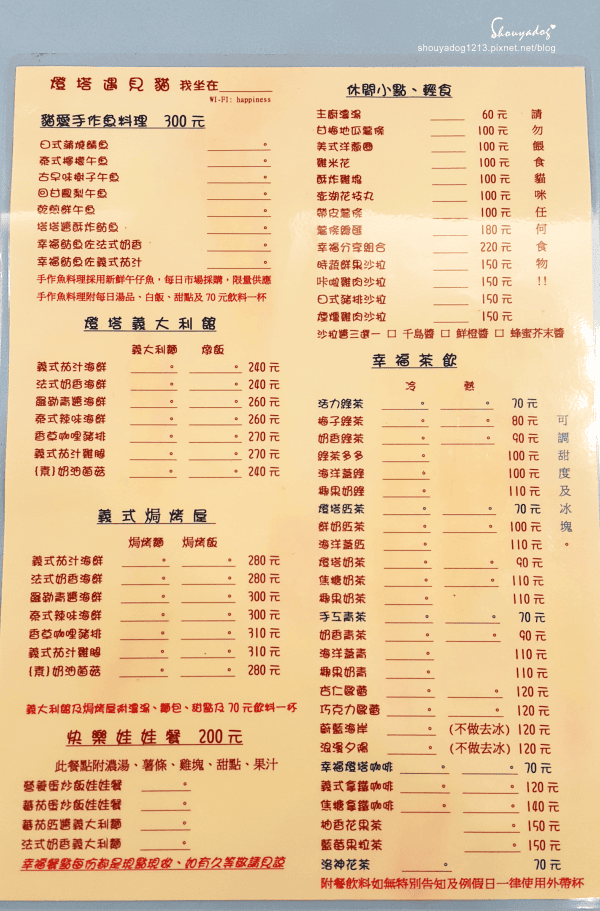 Shouyadog
shouyadog1213.pixnet.net/blog
燈塔遇見貓 我坐在
WI-FI: happiness
貓愛手作魚料理 300元
日式蒲燒鯖魚
泰式檸檬午魚
古早味樹子午魚
回甘鳳梨午魚
乾煎鮮午魚
塔塔醬酥炸魴魚
幸福魴魚佐法式奶香
幸福魴魚佐義式茄汁
手作魚料理採用新鮮午仔魚，每日市場採購，限量供應
手作魚料理附每日湯品、白飯、甜點及70元飲料一杯
燈塔義大利館
義大利麵 燉飯
義式茄汁海鮮 240元
法式奶香海鮮 240元
羅勒青醬海鮮 260元
泰式辣味海鮮 260元
香草咖哩豬排 270元
義式茄汁雞腿 270元
(素)奶油菌菇 240元
義式焗烤屋
焗烤麵 焗烤飯
義式茄汁海鮮 280元
法式奶香海鮮 280元
羅勒青醬海鮮 300元
泰式辣味海鮮 300元
香草咖哩豬排 310元
義式茄汁雞腿 310元
(素)奶油菌菇 280元
義大利館及焗烤屋附濃湯、麵包、甜點及70元飲料一杯
快樂娃娃餐 200元
此餐點附濃湯、薯條、雞塊、甜點、果汁
營養蛋炒飯娃娃餐
蕃茄蛋炒飯娃娃餐
蕃茄肉醬義大利麵
法式奶香義大利麵
幸福餐點每份都是現點現做、如有久等敬請見諒
休閒小點、輕食
主廚濃湯 60元
甘梅地瓜薯條 100元
美式洋蔥圈 100元
雞米花 100元
酥炸雞塊 100元
澎湖花枝丸 100元
帶皮薯條 100元
薯條雙拼 180元
幸福分享組合 220元
時蔬鮮果沙拉 150元
咔啦雞肉沙拉 150元
日式豬排沙拉 150元
煙燻雞肉沙拉 150元
請勿餵食貓咪任何食物!!
沙拉醬三選一 □ 千島醬 □ 鮮橙醬 □ 蜂蜜芥末醬
幸福茶飲
冷 熱
活力綠茶 70元
梅子綠茶 80元
奶香綠茶 90元
綠茶多多 100元
海洋蓋綠 100元
椰果奶綠 110元
燈塔紅茶 70元
鮮奶紅茶 100元
海洋蓋紅 110元
燈塔奶茶 90元
焦糖奶茶 110元
椰果奶茶 110元
手工青茶 70元
奶香青茶 90元
海洋蓋青 110元
椰果奶青 110元
杏仁歐蕾 120元
巧克力歐蕾 120元
蔚藍海岸 (不做去冰) 120元
浪漫夕陽 (不做去冰) 120元
幸福燈塔咖啡 70元
義式拿鐵咖啡 120元
焦糖拿鐵咖啡 140元
柚香花果茶 150元
藍莓果粒茶 150元
洛神花茶 70元
可調甜度及冰塊。
附餐飲料如無特別告知及例假日一律使用外帶杯